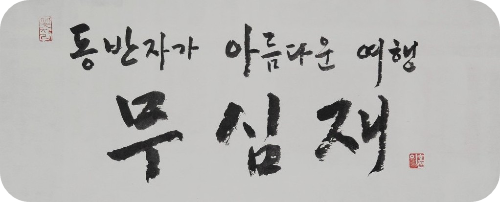 동반자가 아름다운 여행
무심재